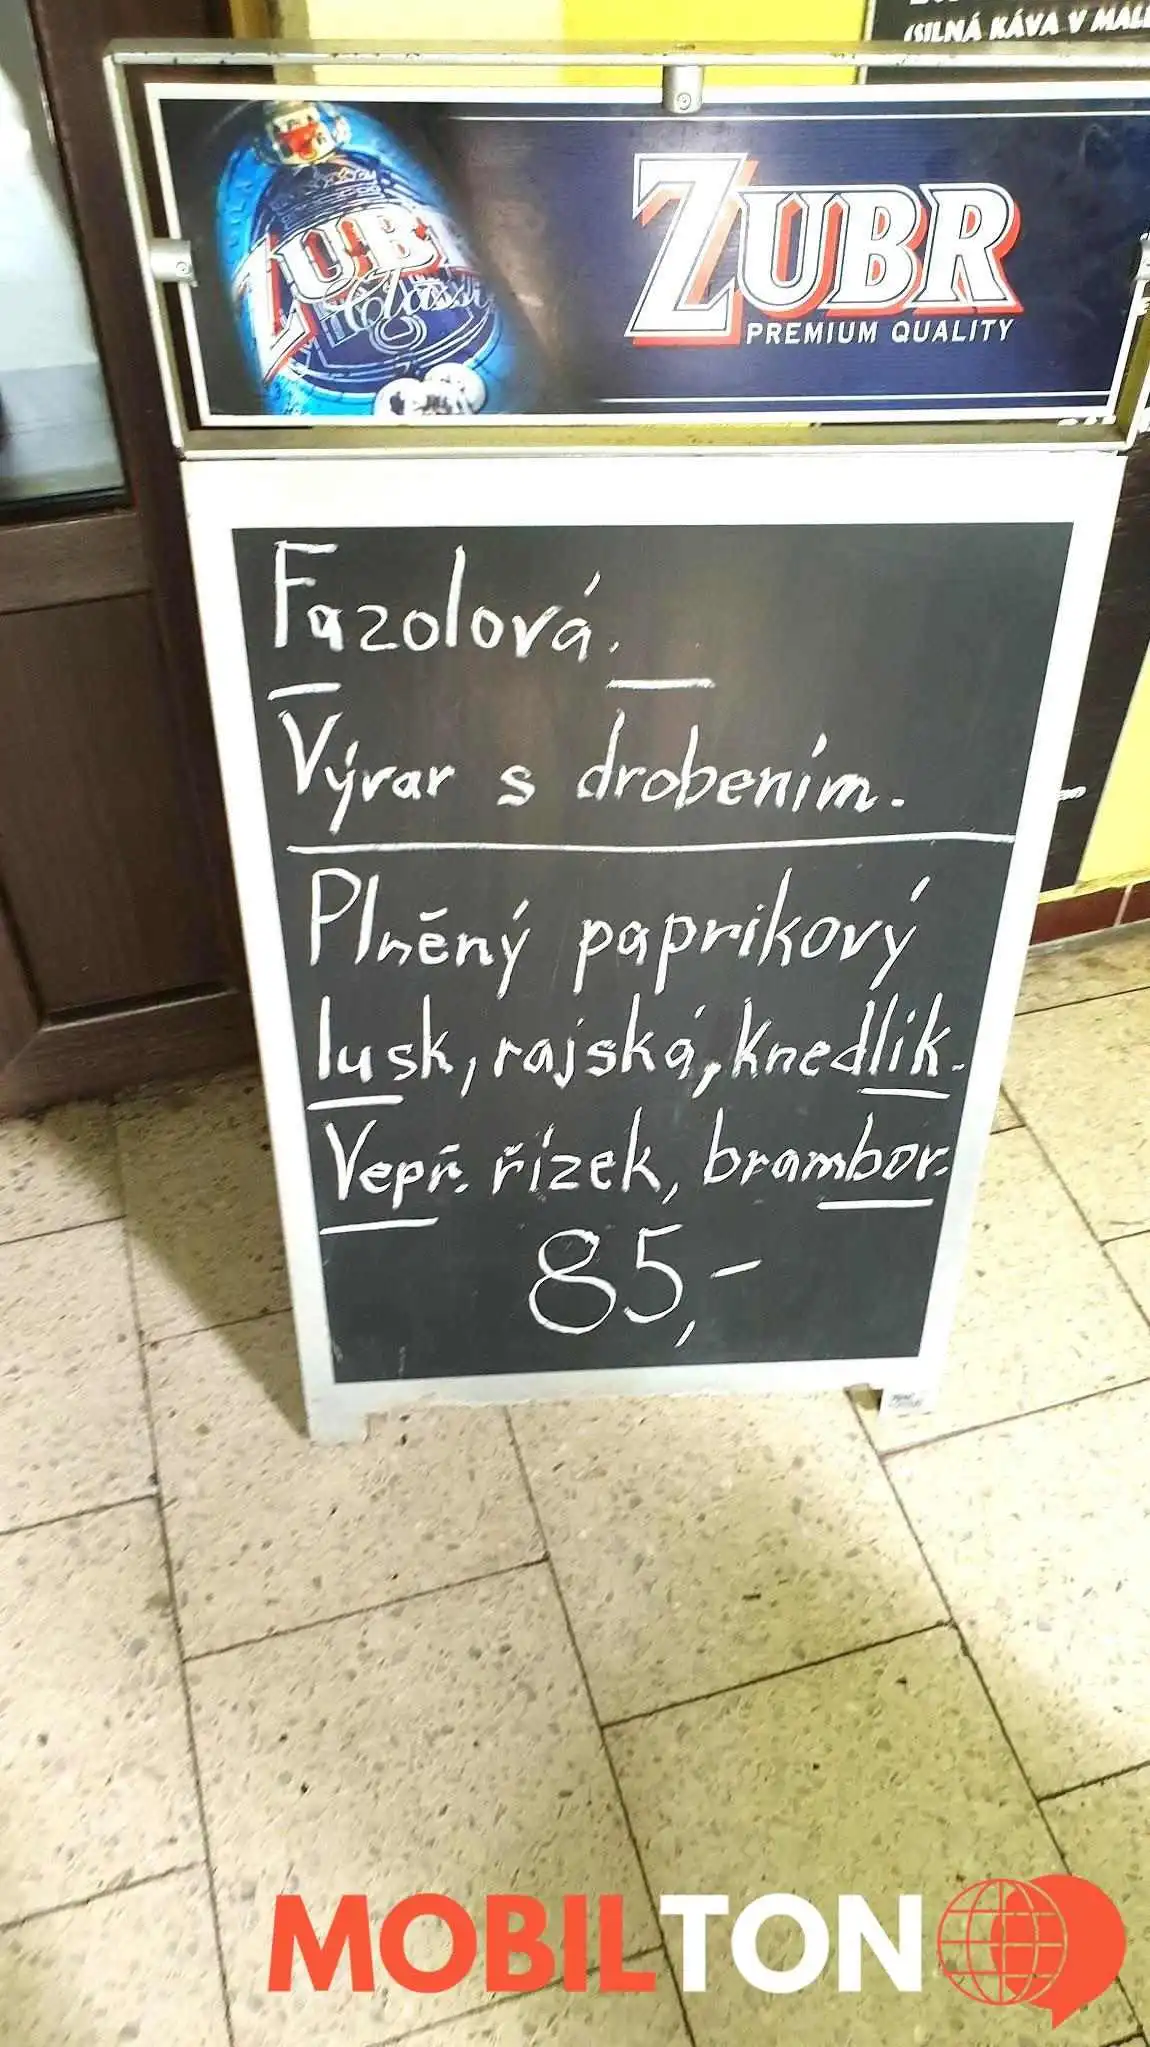 (SILNÁ KÁVA V MAL
ZUBR
Classi
ZUBR
PREMIUM QUALITY
Fazolová.
Vývar s drobením.
Plněný paprikový
lusk, rajská, knedlík.
Vepř. řízek, brambor.
85,-
MOBILTON